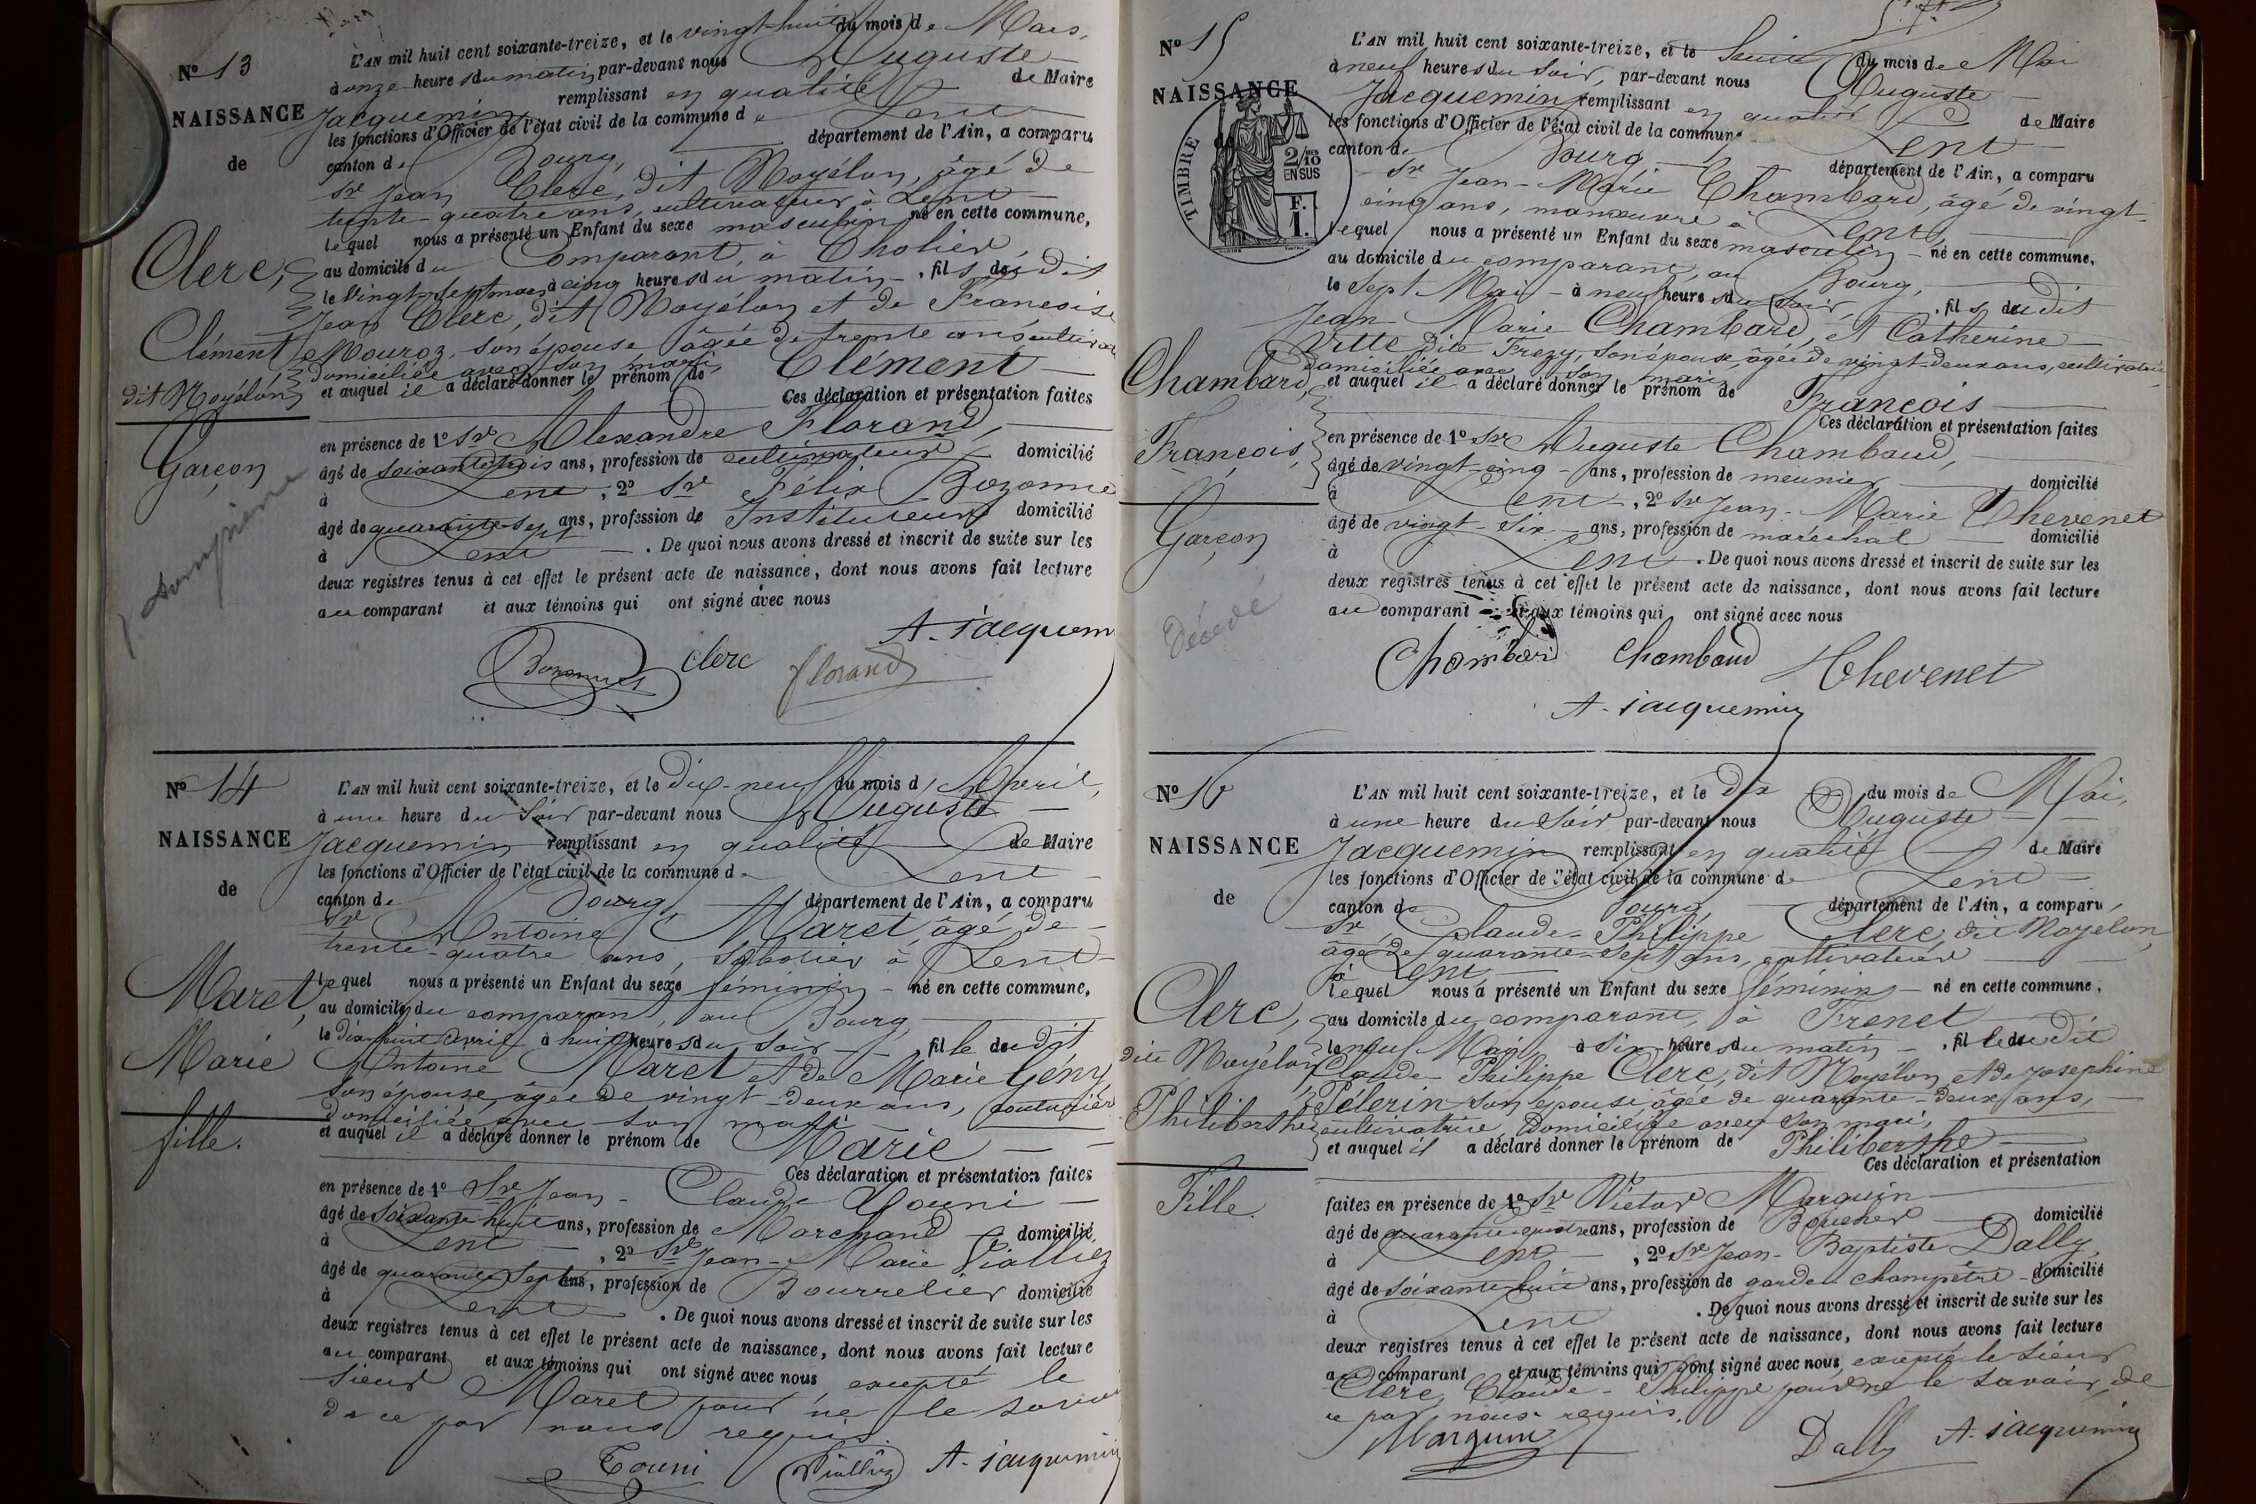 Nº 13
NAISSANCE
de
Clerc,
Clément
dit Noyélon
Garçon
L'AN mil huit cent soixante-treize, et le vingt-huit du mois de Mars,
à onze heures du matin, par-devant nous Auguste
Jacquemin remplissant en qualité de Maire
les fonctions d'Officier de l'état civil de la commune de Lent
canton de Bourg, département de l'Ain, a comparu
Sr Jean Clerc, dit Noyélon, âgé de
trente-quatre ans, cultivateur à Lent
lequel nous a présenté un Enfant du sexe masculin né en cette commune,
au domicile du Comparant, à Cholier,
le Vingt-sept mars à cinq heures du matin, fils du dit
Jean Clerc, dit Noyélon et de Francoise
Mouroz, son épouse âgée de trente ans
domiciliée avec son mari,
et auquel il a déclaré donner le prénom de Clément
Ces déclaration et présentation faites
en présence de 1º Sr Alexandre Florand,
âgé de soixante trois ans, profession de cultivateur domicilié
à Lent, 2º Sr Félix Bozonnet
âgé de quarante-sept ans, profession de Instituteur domicilié
à Lent. De quoi nous avons dressé et inscrit de suite sur les
deux registres tenus à cet effet le présent acte de naissance, dont nous avons fait lecture
au comparant et aux témoins qui ont signé avec nous
A. Jacquemin
Bozonnet Clerc Florand
Nº 14
NAISSANCE
de
Maret,
Marie
fille.
L'AN mil huit cent soixante-treize, et le dix-neuf du mois d'Avril,
à une heure du Soir par-devant nous Auguste
Jacquemin remplissant en qualité de Maire
les fonctions d'Officier de l'état civil de la commune de Lent
canton de Bourg, département de l'Ain, a comparu
Sr Antoine Maret, âgé de
trente-quatre ans, Sabotier à Lent
lequel nous a présenté un Enfant du sexe féminin né en cette commune,
au domicile du comparant, au Bourg,
le dix-huit Avril à huit heures du Soir, fille du dit
Antoine Maret et de Marie Gény,
son épouse, âgée de vingt deux ans, couturière
domiciliée avec son mari
et auquel il a déclaré donner le prénom de Marie
Ces déclaration et présentation faites
en présence de 1º Sr Jean-Claude Touni
âgé de soixante huit ans, profession de Marchand domicilié
à Lent, 2º Sr Jean-Marie Viallièz
âgé de quarante sept ans, profession de Bourrelier domicilié
à Lent. De quoi nous avons dressé et inscrit de suite sur les
deux registres tenus à cet effet le présent acte de naissance, dont nous avons fait lecture
au comparant et aux témoins qui ont signé avec nous excepté le
sieur Maret pour ne le savoir
de ce par nous requis.
Touni Viallièz A. Jacquemin
Nº 15
NAISSANCE
de
TIMBRE
2/10 EN SUS
F. 1.
Chambard,
François,
Garçon
Décédé
L'AN mil huit cent soixante-treize, et le huit du mois de Mai
à neuf heures du Soir, par-devant nous Auguste
Jacquemin remplissant en qualité de Maire
les fonctions d'Officier de l'état civil de la commune Lent
canton de Bourg département de l'Ain, a comparu
Sr Jean-Marie Chambard, âgé de vingt-
cinq ans, manœuvre à Lent,
lequel nous a présenté un Enfant du sexe masculin né en cette commune,
au domicile du comparant, au Bourg,
le Sept Mai à neuf heures du Soir, fils du dit
Jean Marie Chambard, et Catherine
Vitte dite Frezy, son épouse, âgée de vingt-deux ans, cultivatrice,
domiciliée avec son mari
et auquel il a déclaré donner le prénom de François
Ces déclaration et présentation faites
en présence de 1º Sr Auguste Chambaud,
âgé de vingt-cinq ans, profession de meunier domicilié
à Lent, 2º Sr Jean-Marie Thevenet
âgé de vingt-six ans, profession de maréchal domicilié
à Lent. De quoi nous avons dressé et inscrit de suite sur les
deux registres tenus à cet effet le présent acte de naissance, dont nous avons fait lecture
au comparant et aux témoins qui ont signé avec nous
Chambard Chambaud Thevenet
A. Jacquemin
Nº 16
NAISSANCE
de
Clerc,
dite Noyélon
Philiberthe
Fille.
L'AN mil huit cent soixante-treize, et le dix du mois de Mai,
à une heure du Soir par-devant nous Auguste
Jacquemin remplissant en qualité de Maire
les fonctions d'Officier de l'état civil de la commune de Lent
canton de Bourg, département de l'Ain, a comparu,
Sr Claude-Philippe Clerc, dit Noyélon,
âgé de quarante-sept ans, cultivateur
à Lent,
lequel nous a présenté un Enfant du sexe féminin né en cette commune,
au domicile du comparant, à Frenet
le neuf Mai à six heures du matin, fille du dit
Claude Philippe Clerc, dit Noyélon et de Josephine
Pélerin son épouse, âgée de quarante-deux ans,
cultivatrice, domiciliée avec son mari,
et auquel il a déclaré donner le prénom de Philiberthe
Ces déclaration et présentation
faites en présence de 1º Sr Victor Marguin
âgé de quarante quatre ans, profession de Boucher domicilié
à Lent, 2º Sr Jean-Baptiste Dally,
âgé de soixante-huit ans, profession de garde champêtre domicilié
à Lent. De quoi nous avons dressé et inscrit de suite sur les
deux registres tenus à cet effet le présent acte de naissance, dont nous avons fait lecture
au comparant et aux témoins qui ont signé avec nous, excepté le sieur
Clerc, Claude-Philippe pour ne le savoir, de
ce par nous requis.
Marguin Dally A. Jacquemin